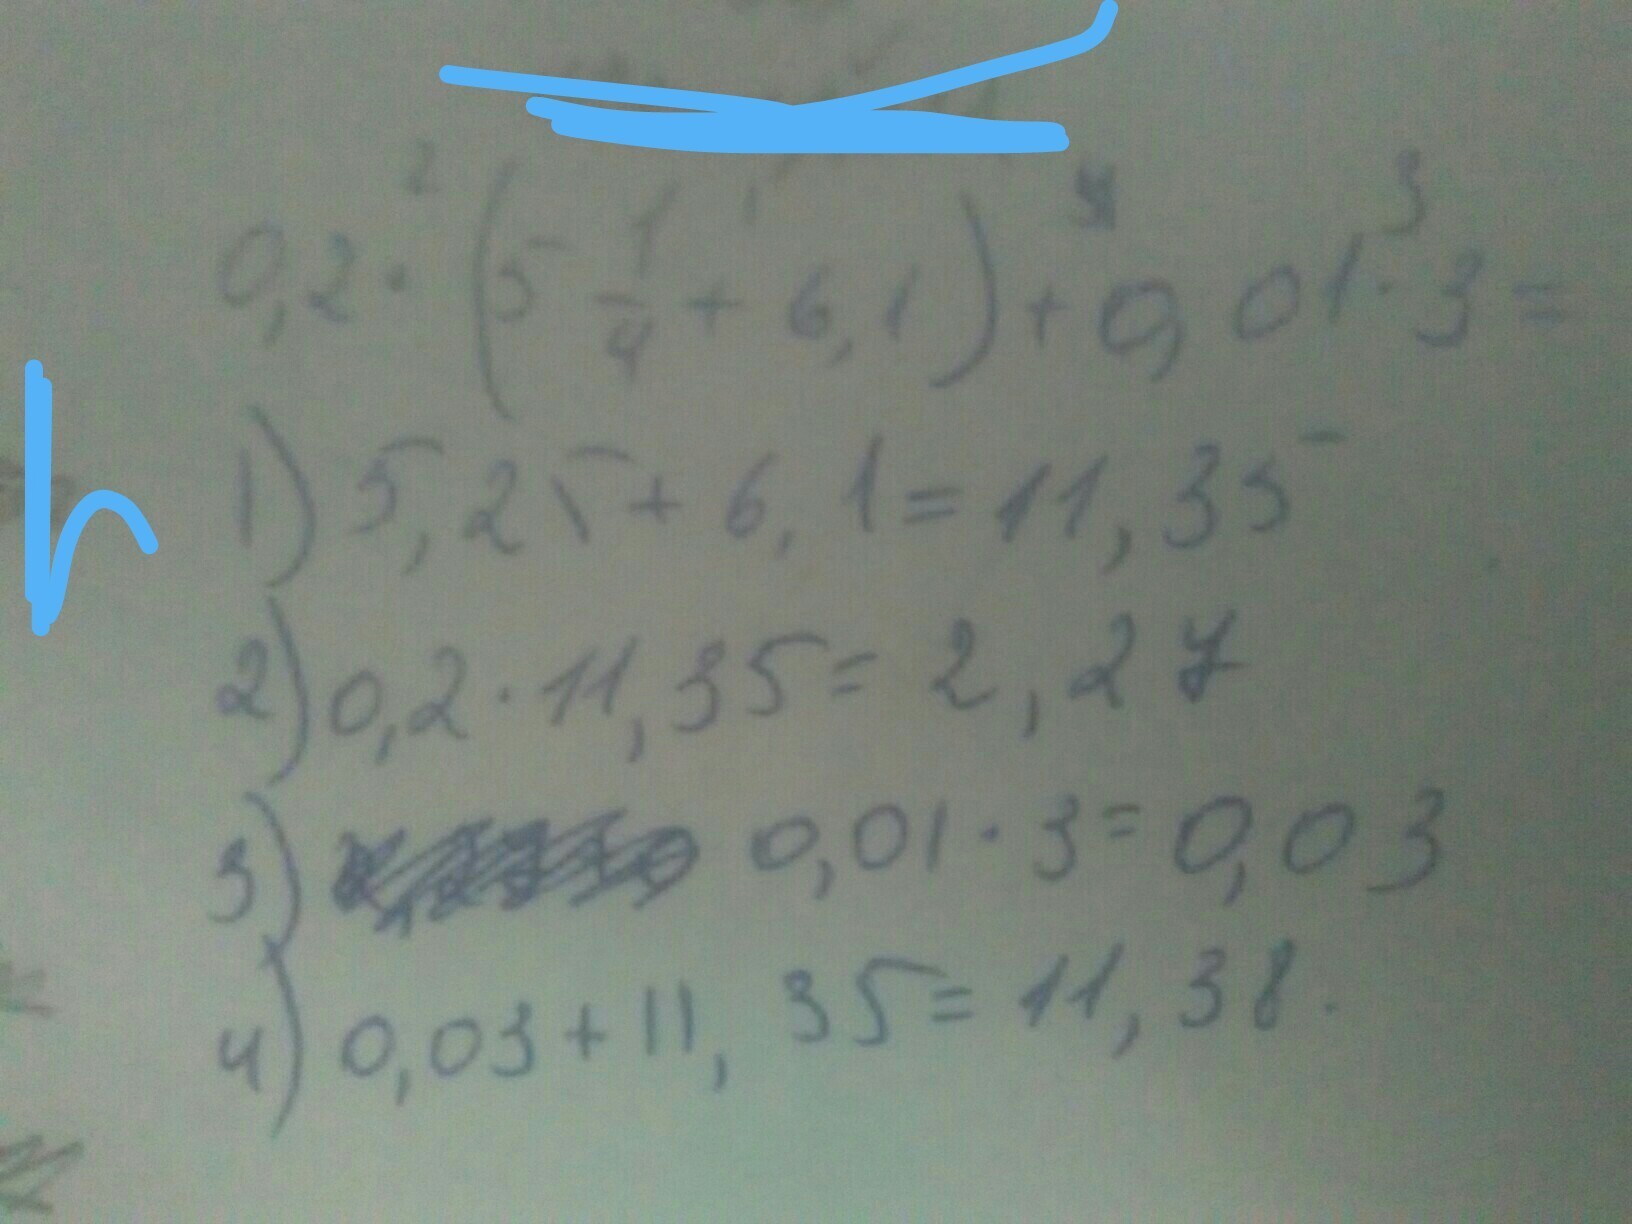 2 1 4 3
0,2 · (5 1/4 + 6,1) + 0,01 · 3 =
1) 5,25 + 6,1 = 11,35
2) 0,2 · 11,35 = 2,27
3) 0,01 · 3 = 0,03
4) 0,03 + 11,35 = 11,38.